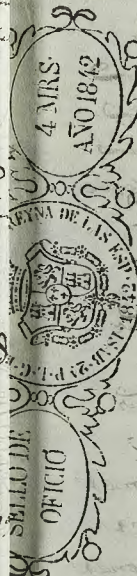 4 MRS.
AÑO 1842
REYNA DE LAS ESP
SELLO DE
OFICIO